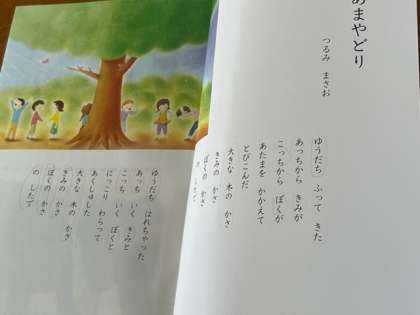 あまやどり
つるみ まさお
ゆうだち ふって きた
あっちから きみが
こっちから ぼくが
あたまを かかえて
とびこんだ
大きな 木の かさ
きみの かさ
ぼくの かさ
ゆうだち はれちゃった
あっち いく きみと
こっち いく ぼくと
にっこり わらって
あくしゅした
大きな 木の かさ
きみの かさ
ぼくの かさ
の したで